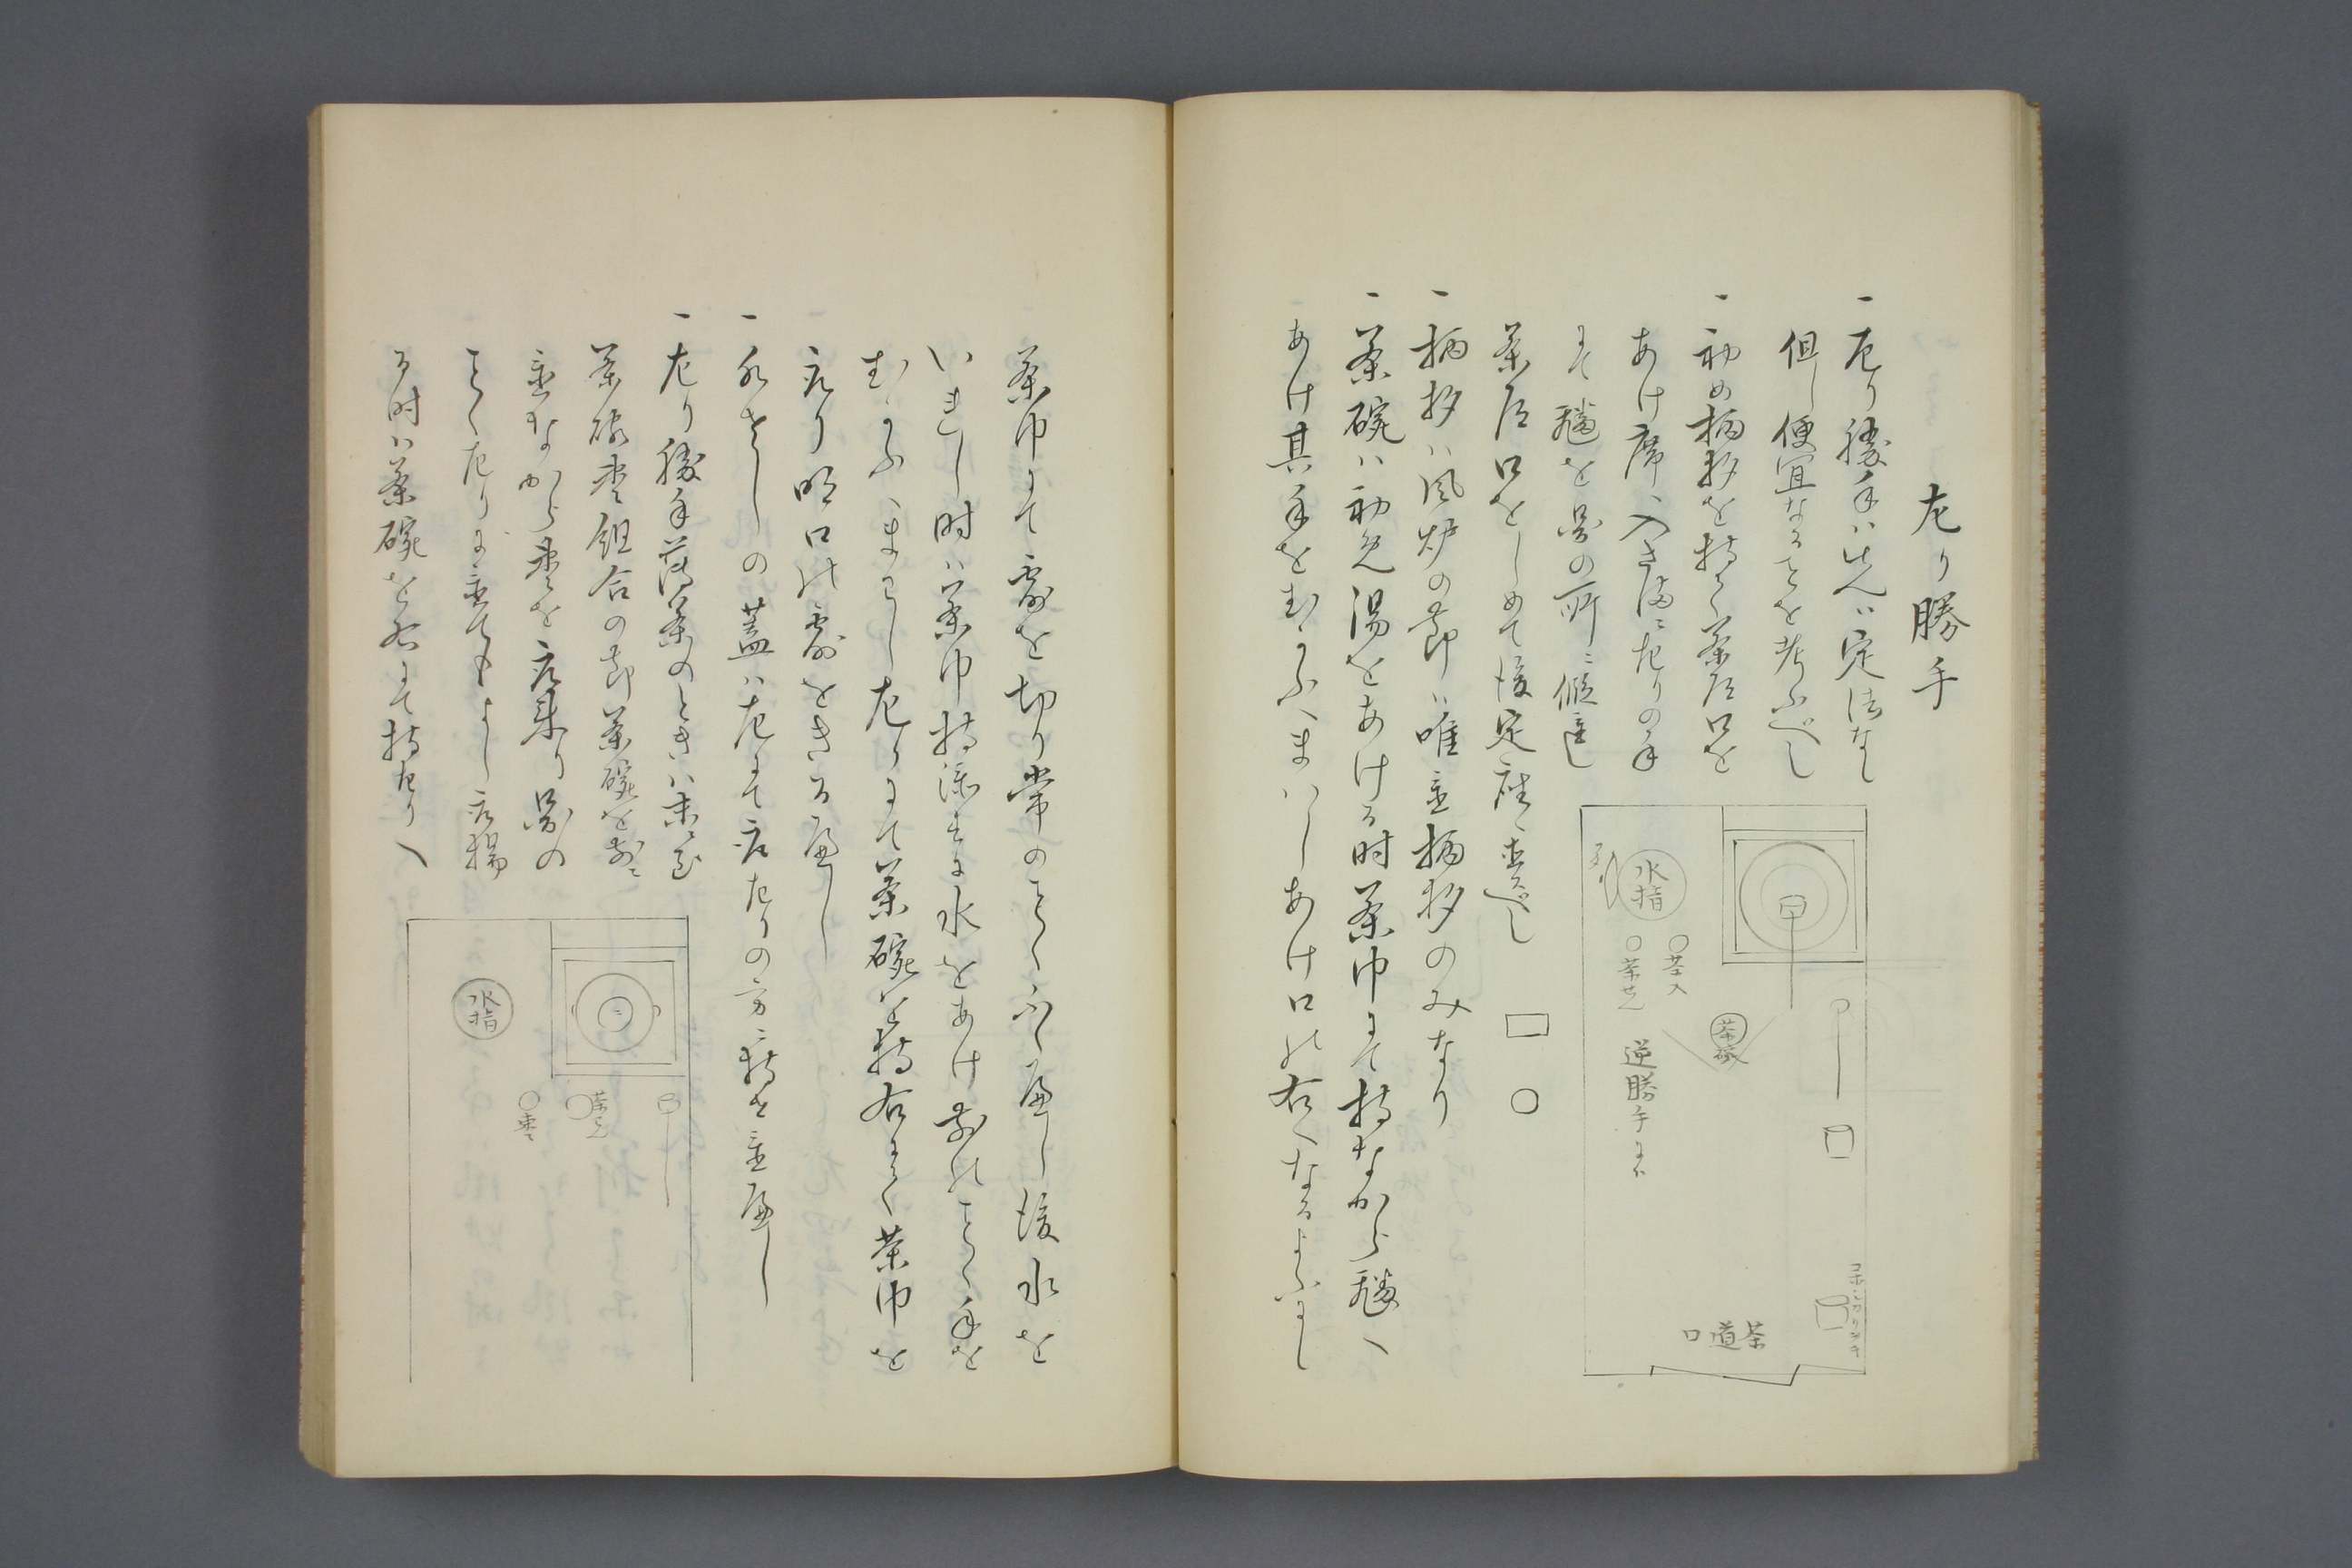 左り勝手
一左り勝手ハ先ハ定法なし
但し便宜なることを考ふべし
一初め柄杓を持て茶道口を
あけ席へ入さまに左りの手
にて翻を図の所に仮置し
茶道口をしめて後定座に置べし
一柄杓ハ風炉の節ハ唯置柄杓のみなり
一茶碗ハ初め湯をあける時茶巾にて持なから翻へ
あけ其手をむかふへまハしあけ口の右へなるよふにし
水指
茶入
茶せん
茶碗
逆勝手にハ
茶道口
茶巾にて露を切り常のことくふくへし後水を
いれし時ハ茶巾持添すに水をあけ前のことく手を
むかふへまわし左りにて茶碗を持右にて茶巾を
取り明口の露をきるへし
一水さしの蓋ハ左にて取左りの方へ持せ置へし
一左り勝手薄茶のときハ
茶碗棗組合の節茶碗を前に
置なから棗を取来り図の
ことく左りに置てもよし取揚
る時ハ茶碗を右にて持左りへ
水指
茶せん
棗